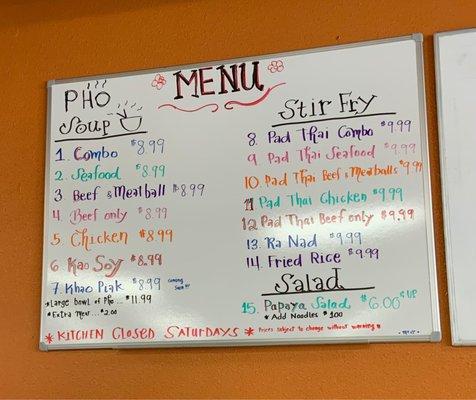 MENU
PHO
Soup
1. Combo $8.99
2. Seafood $8.99
3. Beef & Meatball $8.99
4. Beef only $8.99
5. Chicken $8.99
6. Kao Soy $8.99
7. Khao Piak $8.99 Coming Soon!!!
*Large bowl of Pho... $11.99
*Extra Meat... $2.00
Stir Fry
8. Pad Thai Combo $9.99
9. Pad Thai Seafood $9.99
10. Pad Thai Beef & Meatballs $9.99
11. Pad Thai Chicken $9.99
12. Pad Thai Beef only $9.99
13. Ra Nad $9.99
14. Fried Rice $9.99
Salad
15. Papaya Salad $6.00 & UP
* Add Noodles $1.00
* KITCHEN CLOSED SATURDAYS *
* Prices subject to change without warning !!